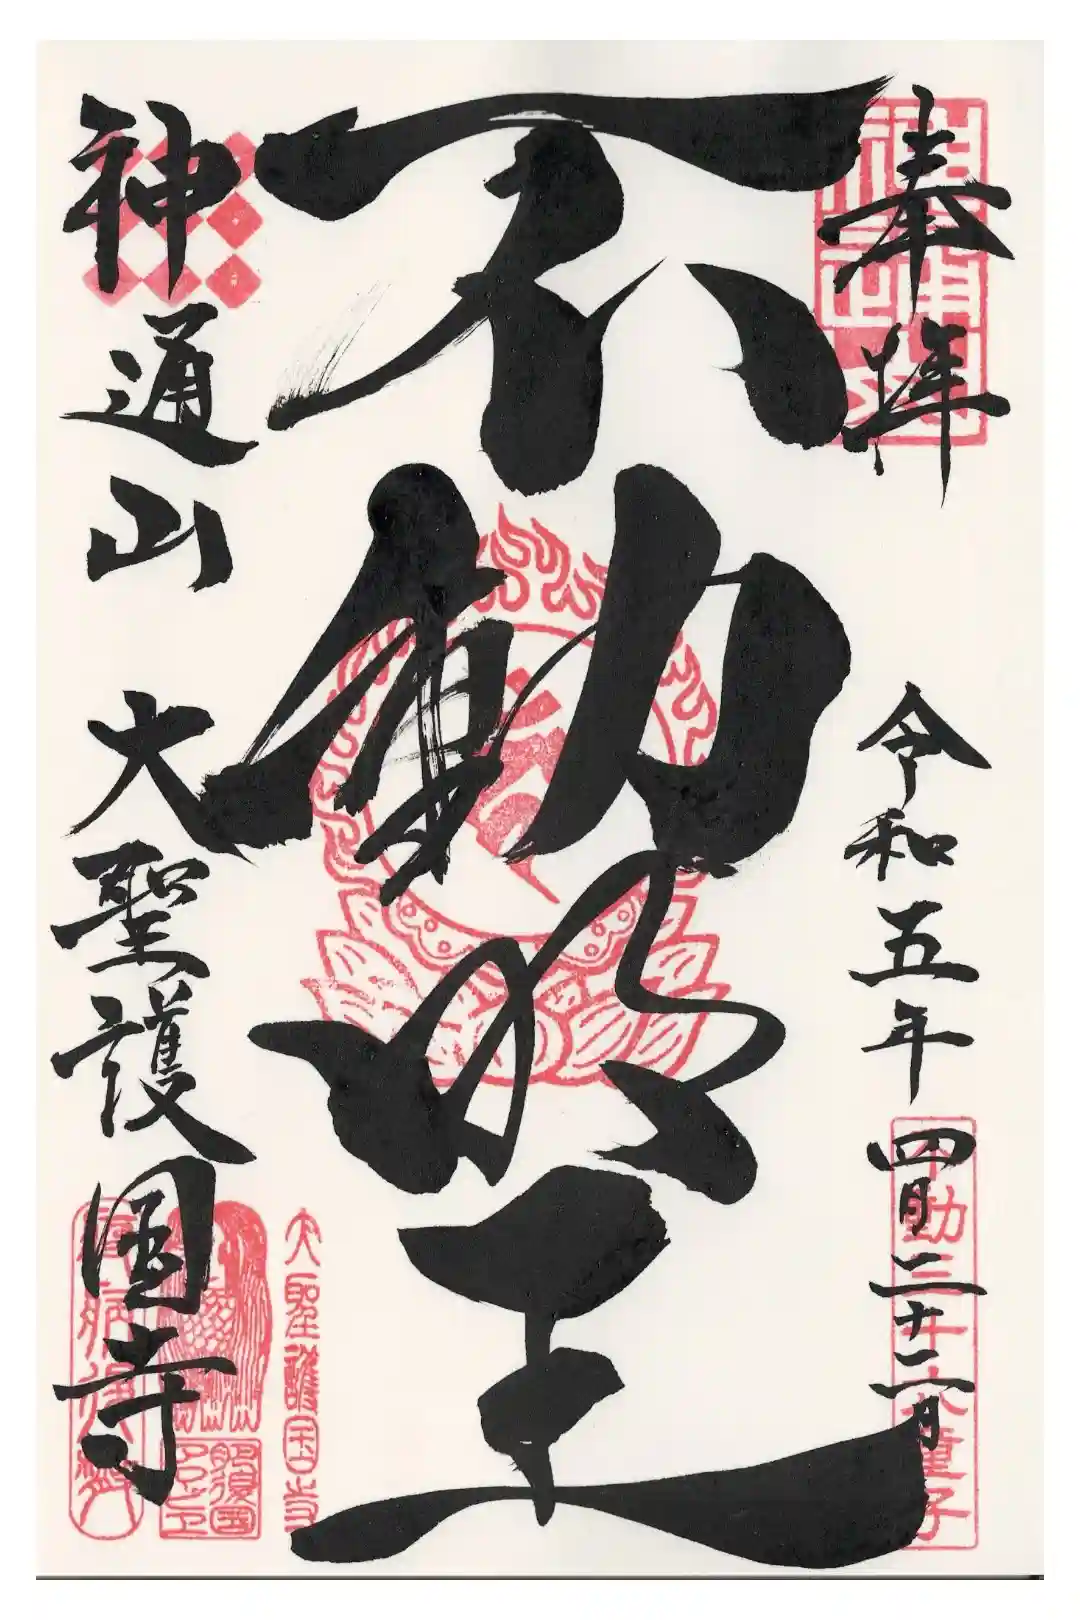 奉拝
令和五年 四月二十二日
不動明王
神通山 大聖護国寺
大聖護国寺